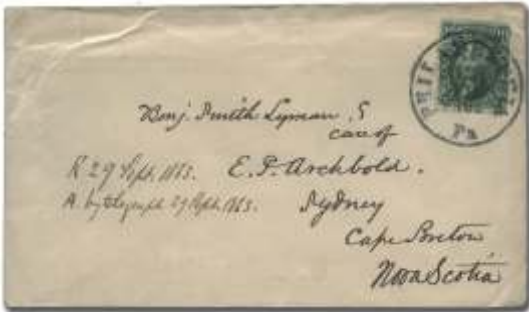 PHILADELPHIA
Pa
Benj. Smith Lyman,
care of
E. P. Archbold.
Sydney
Cape Breton
Nova Scotia
R 29 Sept. 1863.
A. by telegraph 29 Sept. 1863.